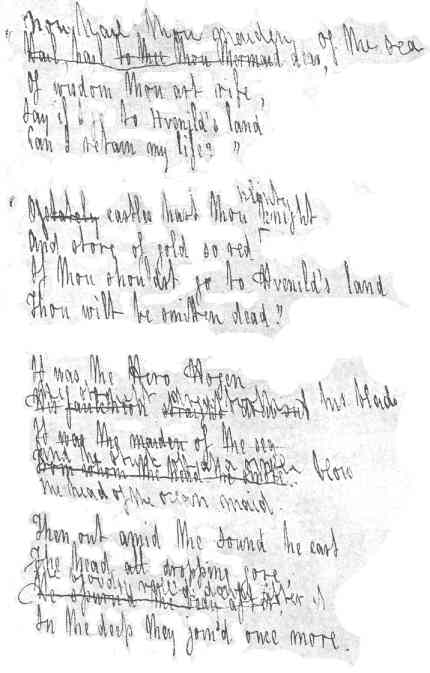 Thou, Hail, thou maiden of the sea
Hail, hail to thee thou mermaid dear,
Of wisdom thou art rife,
Say if I go to Hvenild's land
Can I retain my life? "
" Of stately castles hast thou mighty knight
And store of gold so red
If thou shouldst go to Hvenild's land
Thou wilt be smitten dead."
It was the Hero Hogen
his blade
It was the maiden of the sea
And he struck off blow
From whom the head he smote.
The head of the ocean maid.
Then out amid the sound he cast
The head all dropping gore,
The body
He the after it
In the deep they join'd once more.